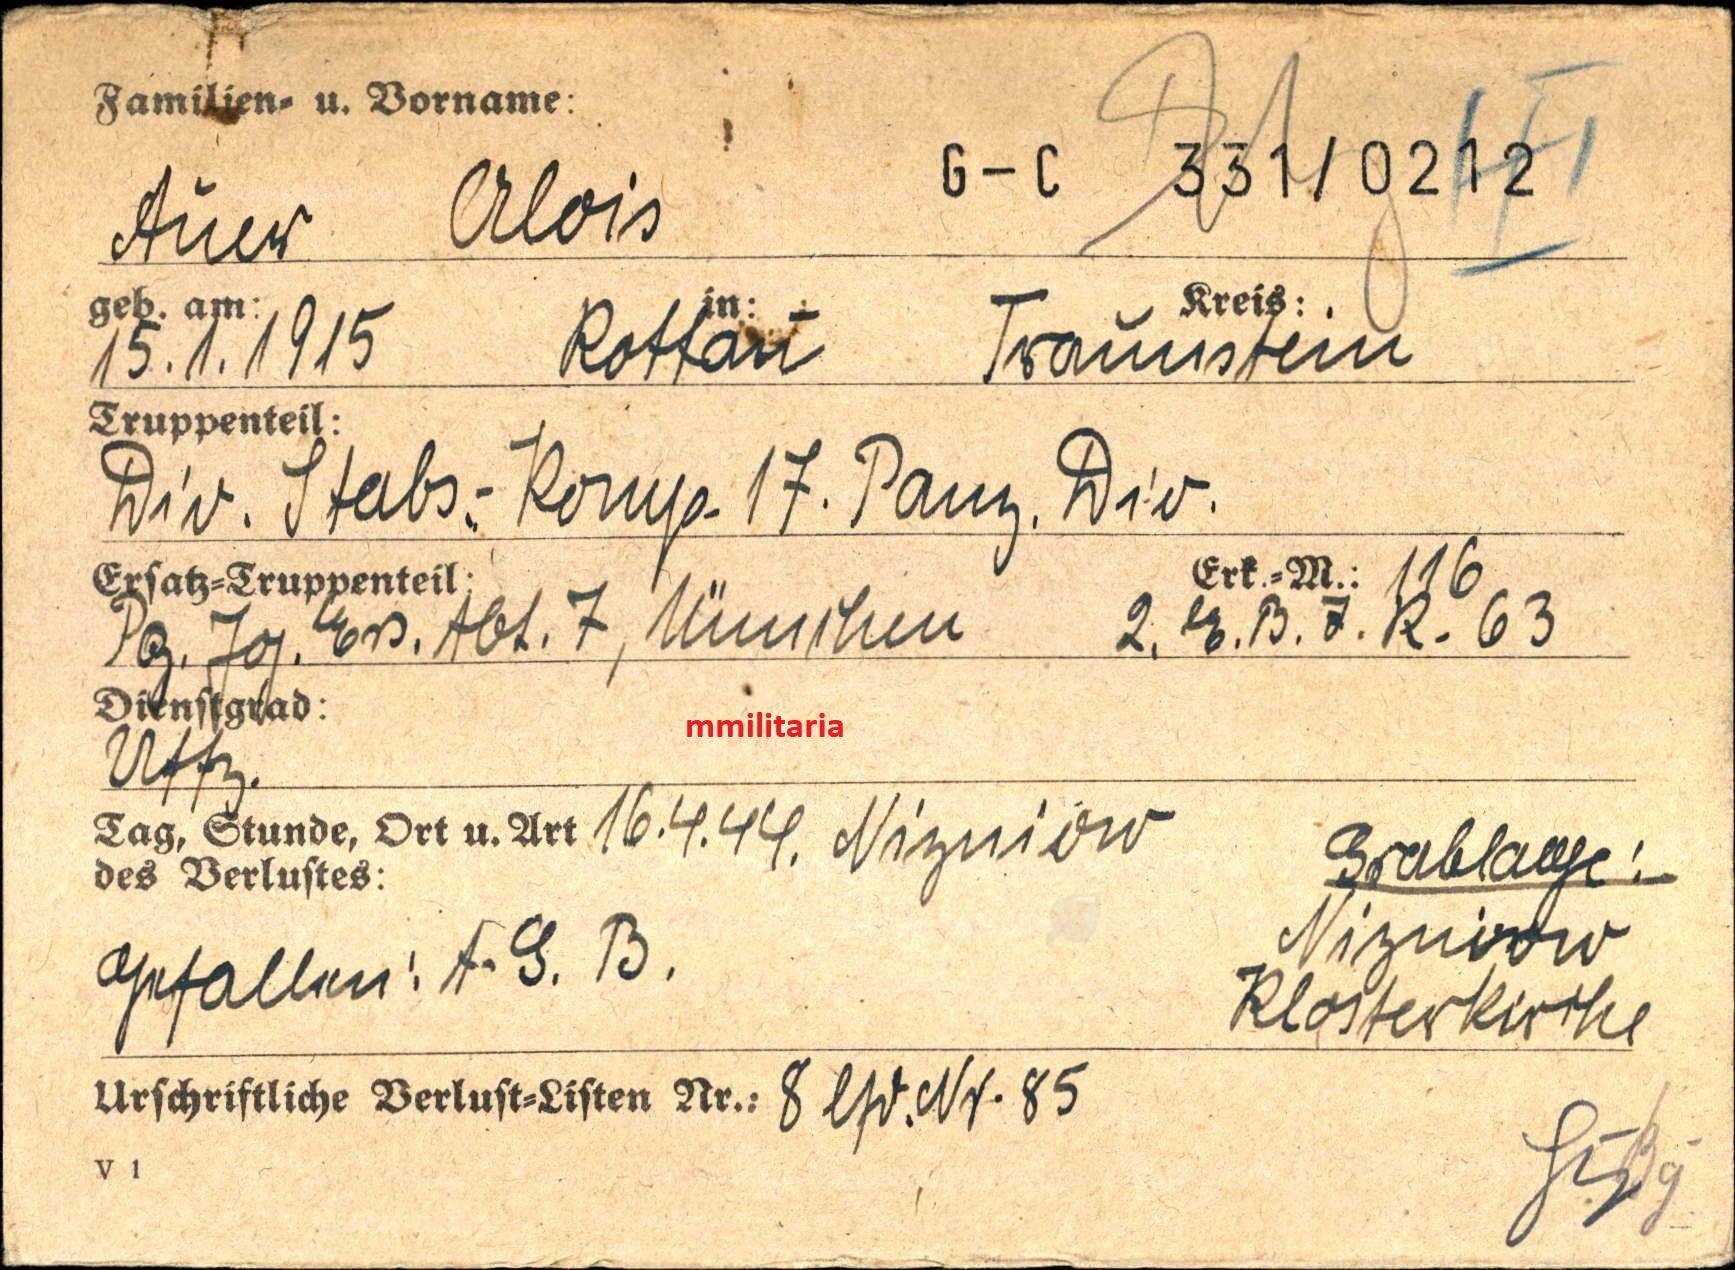 Familien- u. Vorname:
G-C 331/0212
Auer Alois
geb. am: in: Kreis:
15.1.1915 Rottau Traunstein
Truppenteil:
Div. Stabs.- Komp. 17. Panz. Div.
Ersatz-Truppenteil: Erk.-M.: 116
Pz. Jg. Ers. Abt. 7, München 2. E. B. J. R. 63
Dienstgrad:
Uffz.
mmilitaria
Tag, Stunde, Ort u. Art 16.4.44. Nizniow
des Verlustes:
Grablage:
Nizniow
Klosterkirche
gefallen: A. G. B.
Urschriftliche Verlust-Listen Nr.: 8 lfd. Nr. 85
V 1